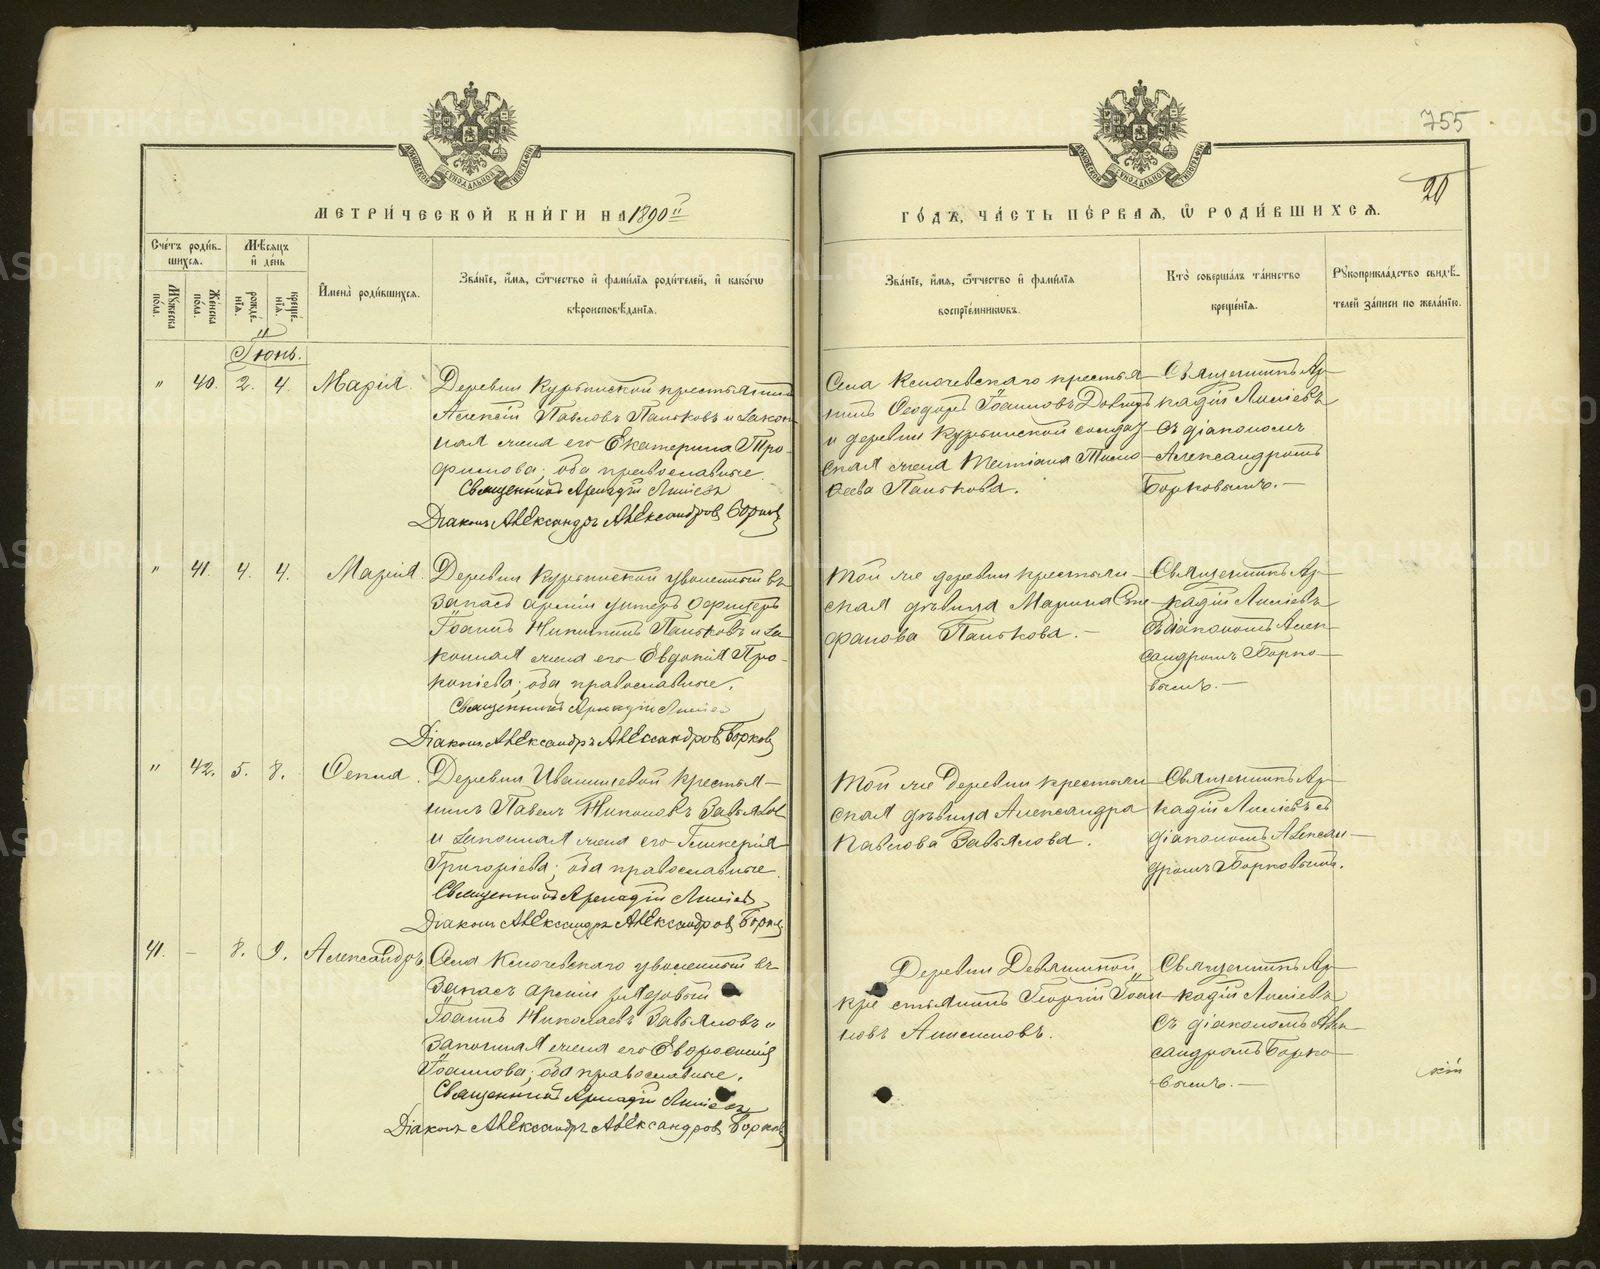 755
20
МЕТРИЧЕСКОЙ КНИГИ НА 1890й
ГОДЪ, ЧАСТЬ ПЕРВАЯ, Ѡ РОДИВШИХСЯ.
Счетъ родив-
шихся.
Мѣсяцъ
и день
Мужеска
пола.
Женска
пола.
рожде-
нія.
креще-
нія.
Имена родившихся.
Званіе, имя, ѿчество и фамилія родителей, и какогѡ
вѣроисповѣданія.
Званіе, имя, ѿчество и фамилія
воспріемниковъ.
Кто совершалъ таинство
крещенія.
Рукоприкладство свидѣ-
телей записи по желанію.
Іюнь.
" 40. 2. 4. Марія.
Деревни Курьинской крестьянинъ
Алексій Павловъ Паньковъ и закон-
ная жена его Екатерина Тро-
фимова; оба православные.
Священникъ Аркадій
Діаконъ Александръ Александровъ Борковъ
Села Ключевскаго крестья-
нинъ Ѳеодоръ Іоанновъ
и деревни Курьинской солдат-
ская жена Тимо-
ѳеева Панькова.
Священникъ Ар-
кадій
съ діакономъ
Александромъ
Борковымъ.-
" 41. 4. 4. Марія.
Деревни Курьинской уволенный въ
запасъ арміи унтеръ офицеръ
Іоаннъ Никитинъ Паньковъ и за-
конная жена его Евдокія Про-
копіева; оба православные.
Священникъ Аркадій
Діаконъ Александръ Александровъ Борковъ
Той же деревни крестьян-
ская дѣвица Марина Сте-
фанова Панькова.-
Священникъ Ар-
кадій
съ діакономъ Алек-
сандромъ Борко-
вымъ.-
" 42. 5. 8.
Деревни крестья-
нинъ Павелъ Никоновъ Завьяловъ
и законная жена его Гликерія
Григоріева; оба православные.
Священникъ Аркадій
Діаконъ Александръ Александровъ Борковъ
Той же деревни крестьян-
ская дѣвица Александра
Павлова Завьялова.
Священникъ Ар-
кадій съ
діакономъ Алексан-
дромъ Борковымъ.
41. - 8. 9. Александръ
Села Ключевскаго уволенный въ
запасъ арміи рядовый
Іоаннъ Николаевъ Завьяловъ и
законная жена его Евфросинія
Іоаннова; оба православные.
Священникъ Аркадій
Діаконъ Александръ Александровъ Борковъ
Деревни
крестьянинъ Георгій Іоан-
новъ Анисимовъ.
Священникъ Ар-
кадій
съ діакономъ Алек-
сандромъ Борко-
вымъ.-
METRIKI.GASO-URAL.RU